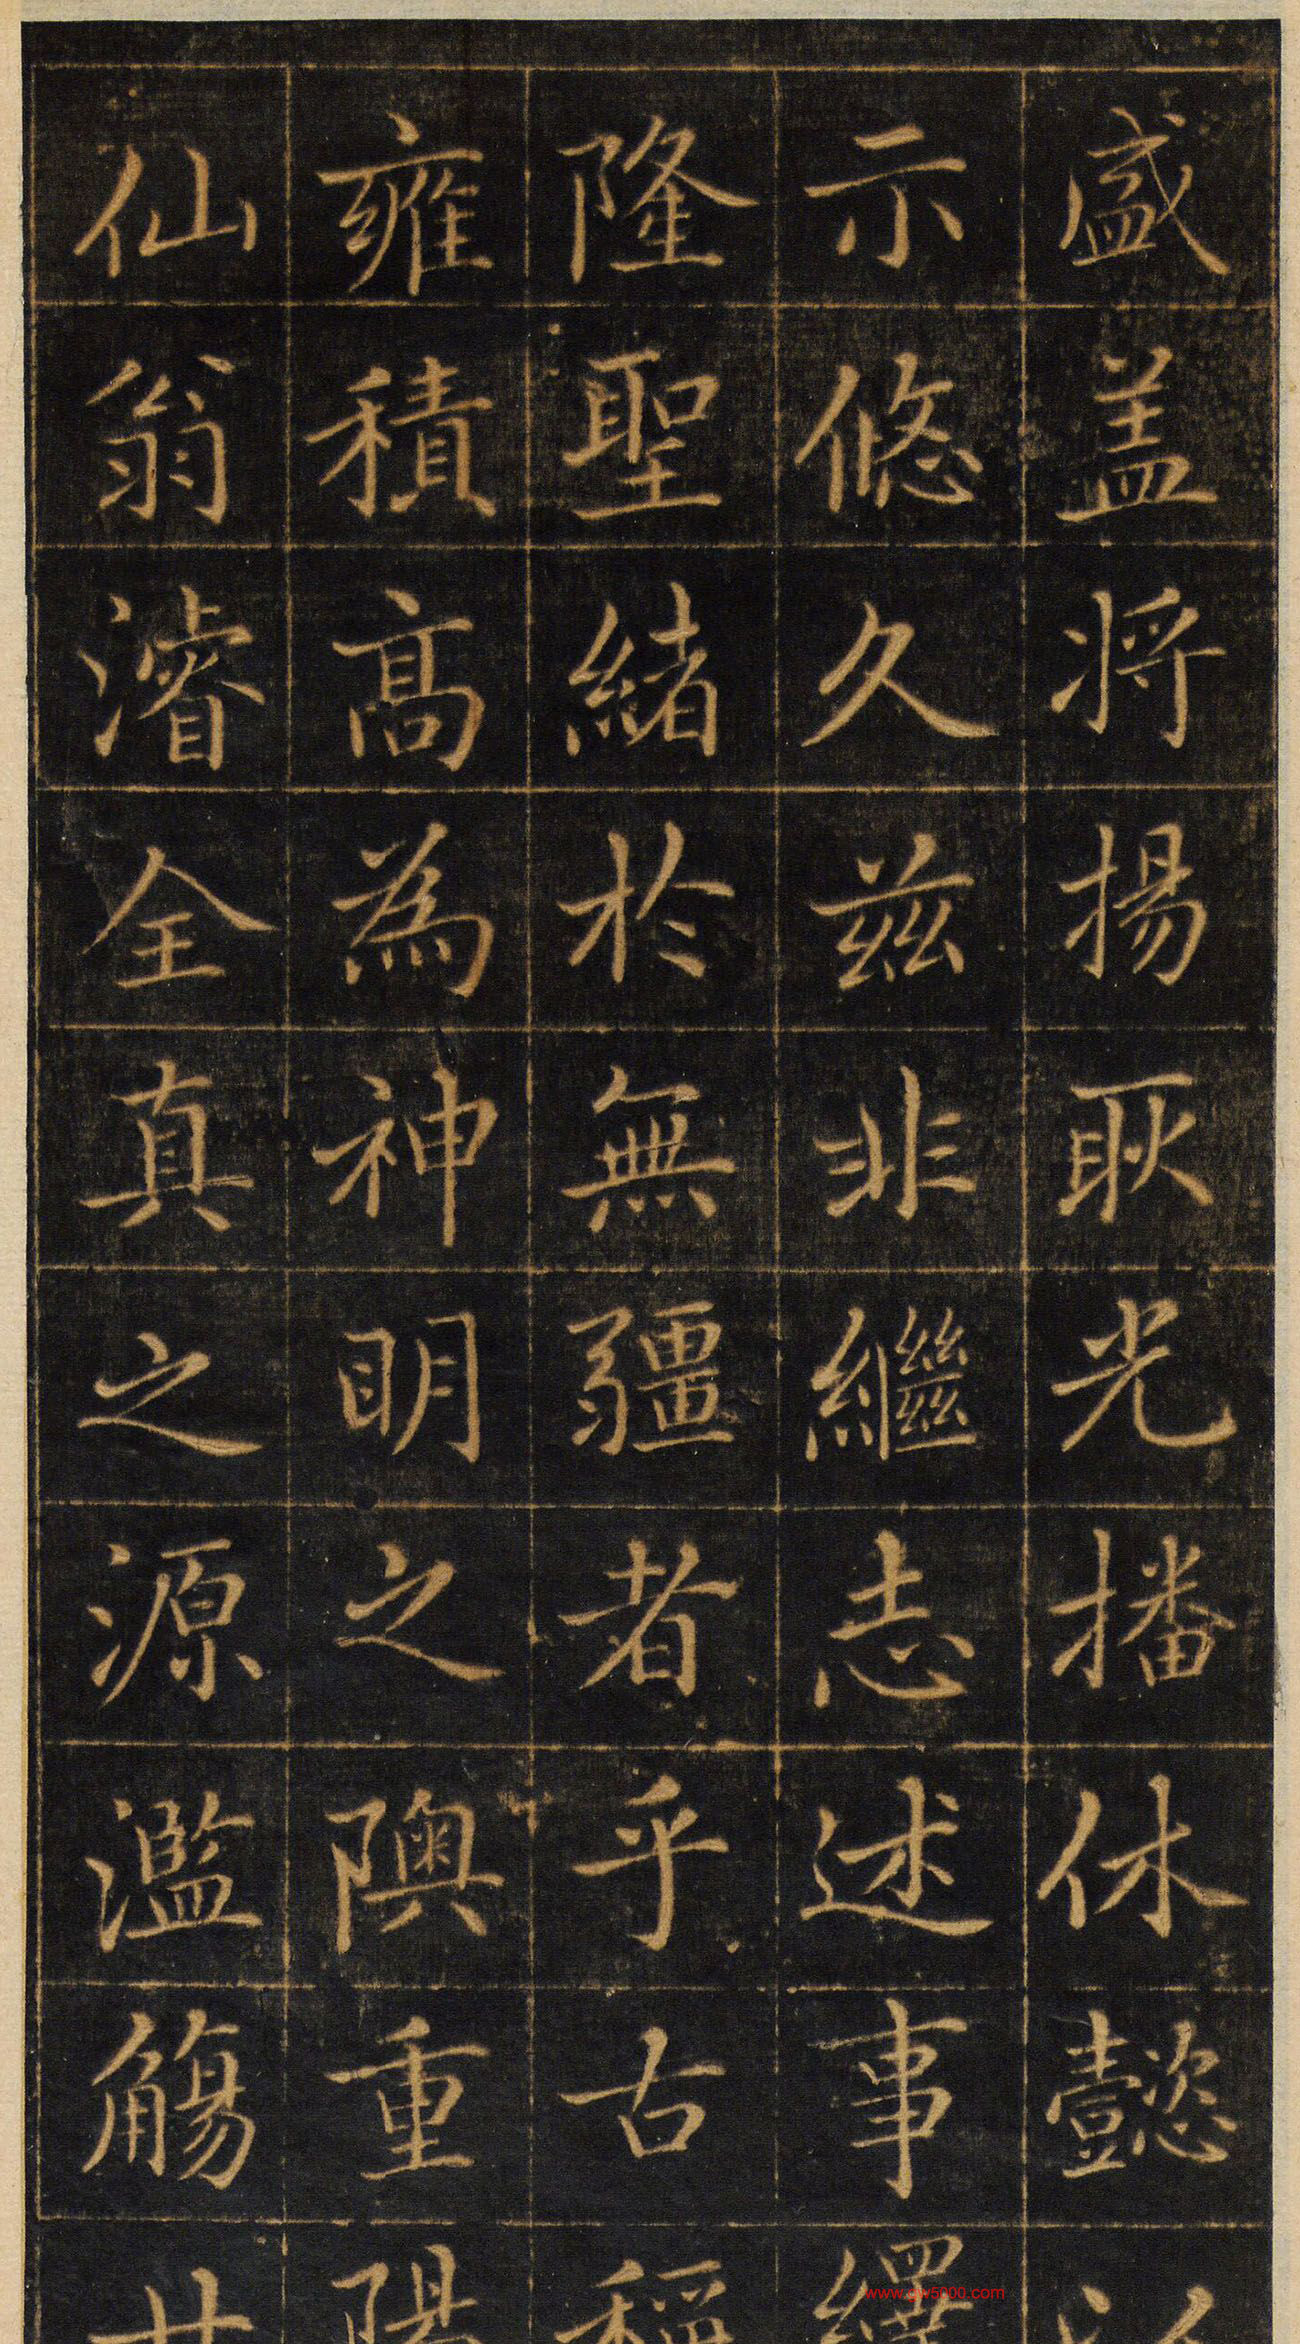 盛盖将揚耿光播休懿以
示悠久兹非繼志述事繹
隆聖緒於無疆者乎古稱
雍積髙為神明之隩重陽
仙翁濬全真之源濫觴廿
www.gw5000.com